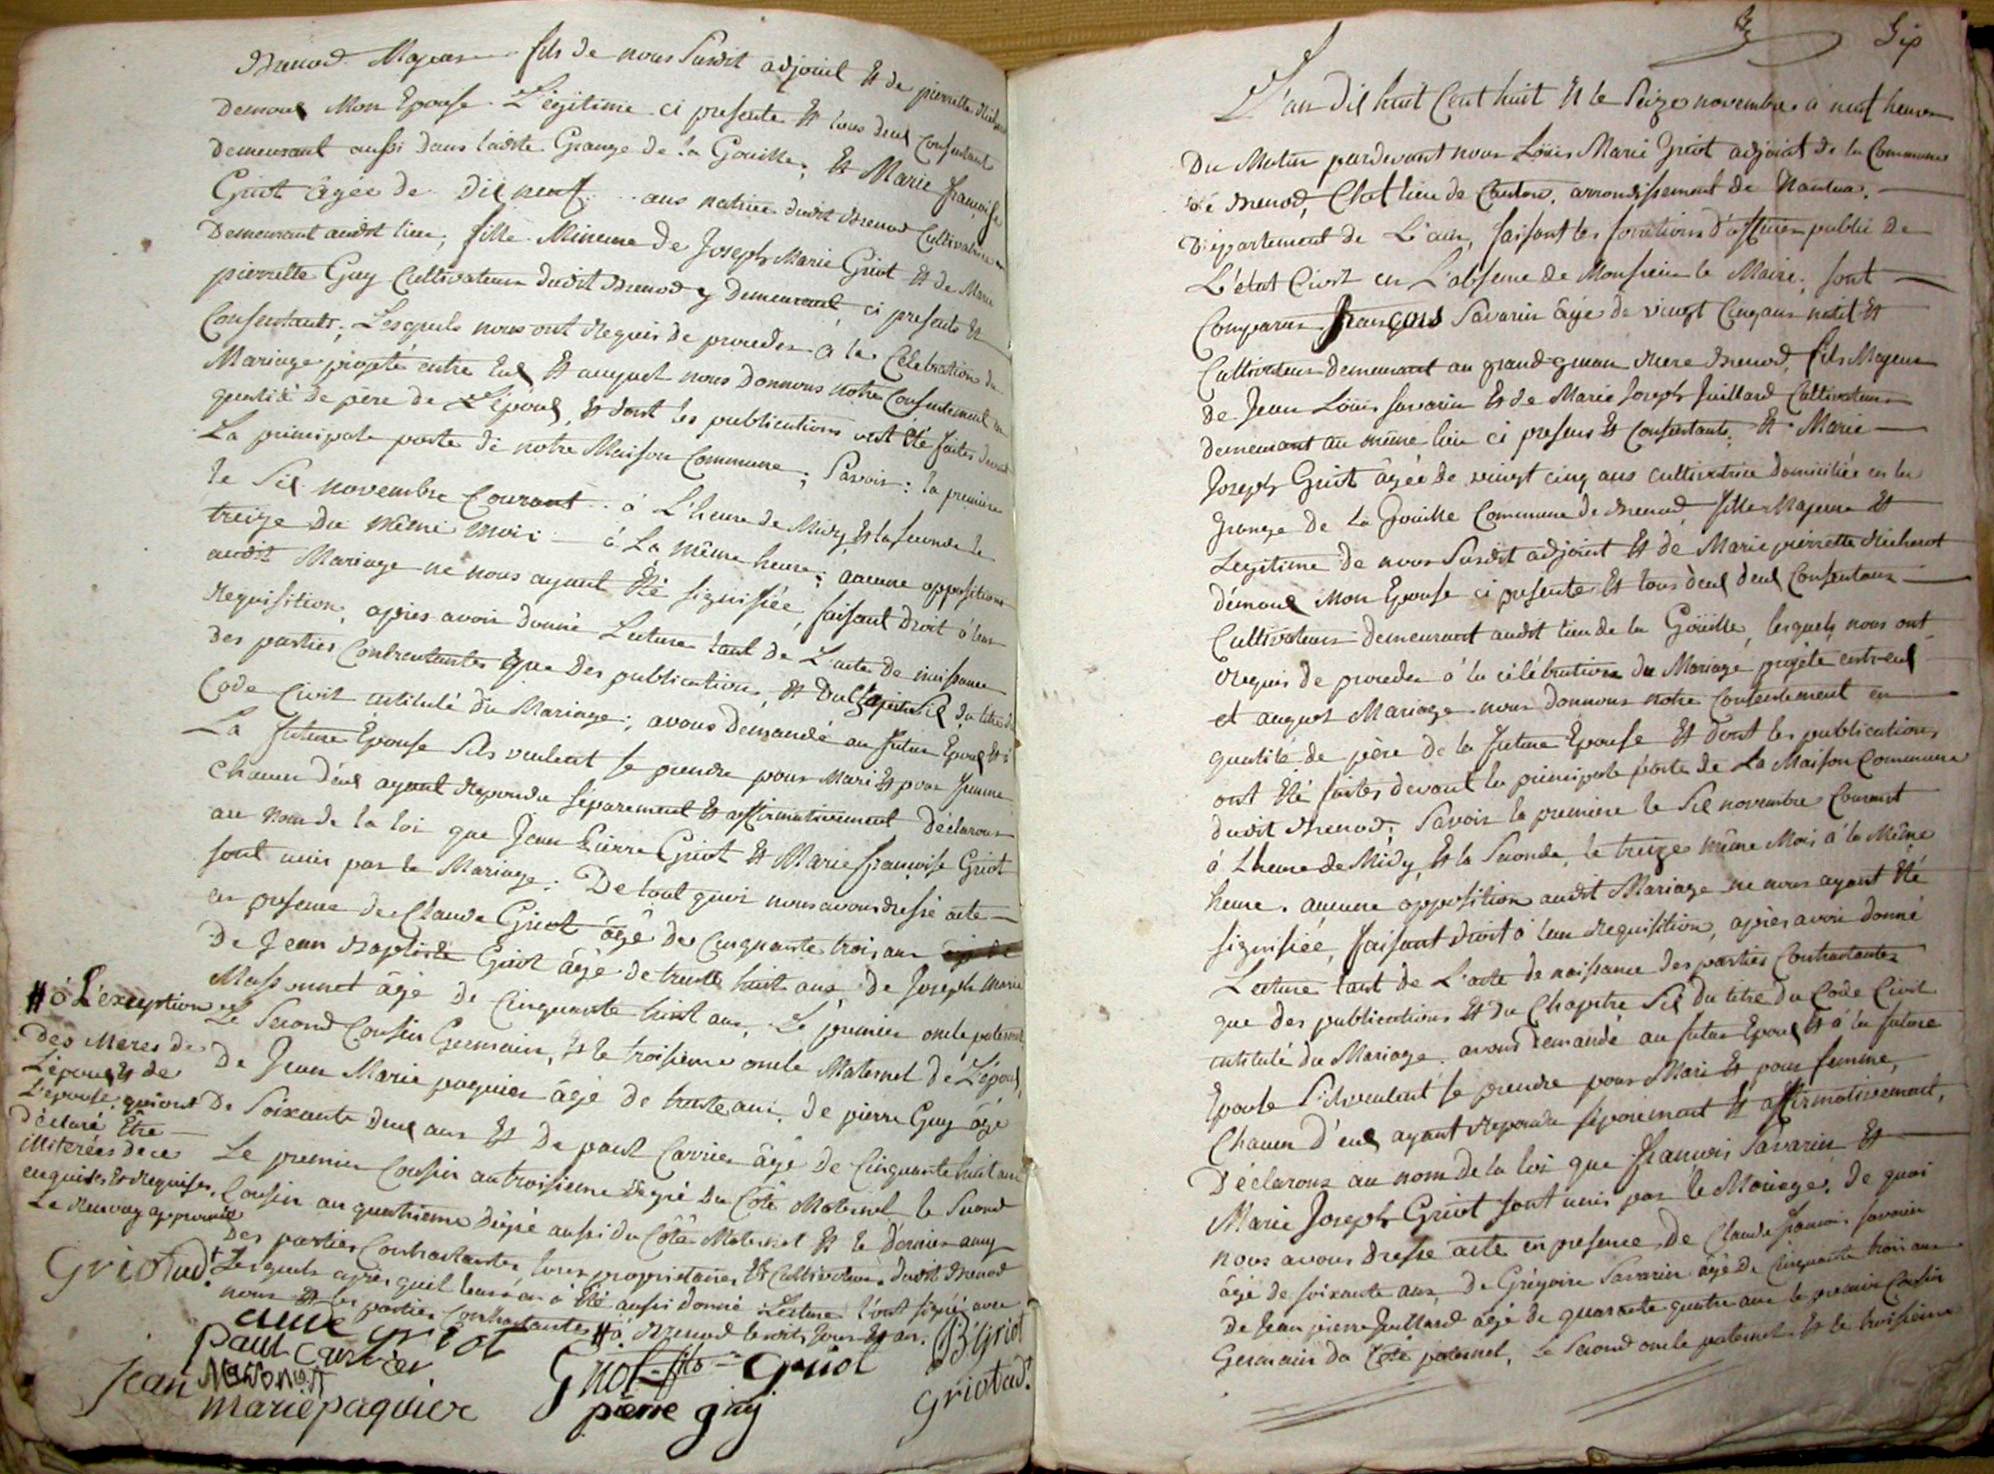 Brenod Majeur fils de nous Susdit adjoint Et de pierrette
demoux Mon Epouse Légitime ci presente Et tous deux Consentant
demeurant aussi dans ladite Grange de la Gouille, Et Marie françoise
Griot âgée de dix neuf ans native dudit Brenod Cultivatrice
Demeurant audit lieu, fille Mineure de Joseph Marie Griot Et de Marie
pierrette Guy Cultivateurs dudit Brenod y demeurant, ci presents Et
Consentants; Lesquels nous ont Requis de proceder à la Célébration du
Mariage projeté entre Eux Et auquel nous Donnons notre Consentement en
qualité de père de L'époux, Et dont les publications ont été faites devant
La principale porte de notre Maison Commune; Savoir: la premiere
le Six novembre Courant à L'heure de Midy, Et la seconde le
treize du même mois à La même heure; aucune opposition
audit Mariage ne nous ayant Eté signifiée, faisant droit à leur
Requisition, apres avoir donné Lecture tant de L'acte de naissance
des parties Contractantes que des publications, Et du Chapitre Six du titre du
Code Civil intitulé du Mariage; avons demandé au futur Epoux Et à
La future Epouse s'ils veulent se prendre pour Mari Et pour femme
chacun d'eux ayant Repondu séparement Et affirmativement Déclarons
au nom de la loi que Jean Pierre Griot Et Marie françoise Griot
sont unis par le Mariage; De tout quoi nous avons dressé acte
en presence de Claude Griot âgé de Cinquante trois ans
De Jean Baptiste Griot âgé de trente huit ans, de Joseph Marie
Massonnet âgé de Cinquante huit ans, Le premier oncle paternel,
Le Second Cousin Germain, Et le troisieme oncle Maternel de L'époux,
de Jean Marie paquier âgé de trente ans, de pierre Guy âgé
De Soixante deux ans Et De paul Carrier âgé de Cinquante huit ans
Le premier Cousin au troisieme degré du Côté Maternel le Second
Cousin au quatrieme degré aussi du Côté Maternel Et le dernier amy
Des parties Contractantes, tous propriétaires Et Cultivateurs dudit Brenod
Lesquels après qu'il leur en a Eté aussi donné Lecture l'ont signé avec
nous Et les parties Contractantes # à Brenod lesdits Jour Et an.
# à L'exception
des Meres de
L'époux Et de
L'épouse qui ont
déclaré Etre
illiterées de ce
enquises Et Requises,
Le Renvoy approuvé
Griot adt
Griot
paul carrier
Masonet
Jean marie paquier
Griot fils
Griot
pierre guy
JB Griot
Griot adt.
Six
L'an Dix huit Cent huit Et le Seize novembre à neuf heures
Du Matin pardevant nous Louis Marie Griot adjoint de la Commune
de Brenod, Chef lieu de Canton, arrondissement de Nantua,
Département de L'ain, faisant les fonctions d'officier public de
L'état Civil en L'absence de Monsieur le Maire, sont
Comparus François Savarin âgé de vingt Cinq ans natif Et
Cultivateur demeurant au grand Brenod, fils Majeur
de Jean Louis Savarin Et de Marie Joseph Juillard Cultivateurs
demeurant au même lieu ci presens Et Consentants; Et Marie
Joseph Griot âgée de vingt cinq ans cultivatrice domiciliée en la
Grange de la Gouille Commune de Brenod fille Majeure Et
Legitime de nous Susdit adjoint Et de Marie pierrette
démoux Mon Epouse ci presente Et tous deux deux Consentans
Cultivateurs demeurant audit lieu de la Goüille, lesquels nous ont
Requis de proceder à la célébration du Mariage projeté entr'eux
et auquel Mariage nous donnons notre Consentement en
qualité de père de la future Epouse Et dont les publications
ont Eté faites devant la principale porte de La Maison Commune
dudit Brenod; Savoir la premiere le Six novembre Courant
à L'heure de Midy, Et la Seconde, le treize même Mois à la Même
heure. aucune opposition audit Mariage ne nous ayant Eté
signifiée, faisant droit à leur Requisition, après avoir donné
Lecture tant de L'acte de naissance des parties Contractantes
que des publications Et du Chapitre Six du titre du Code Civil
intitulé du Mariage. avons demandé au futur Epoux Et à la future
Epouse S'ils veulent se prendre pour Mari Et pour femme,
Chacun d'eux ayant Repondu séparément Et affirmativement,
Déclarons au nom de la loi que françois Savarin Et
Marie Joseph Griot sont unis par le Mariage, de quoi
nous avons dressé acte en presence de Claude françois Savarin
âgé de soixante ans, de Grégoire Savarin âgé de Cinquante trois ans
de Jean pierre Juillard âgé de quarante quatre ans le premier Cousin
Germain du Coté paternel, Le Second oncle paternel Et le troisieme